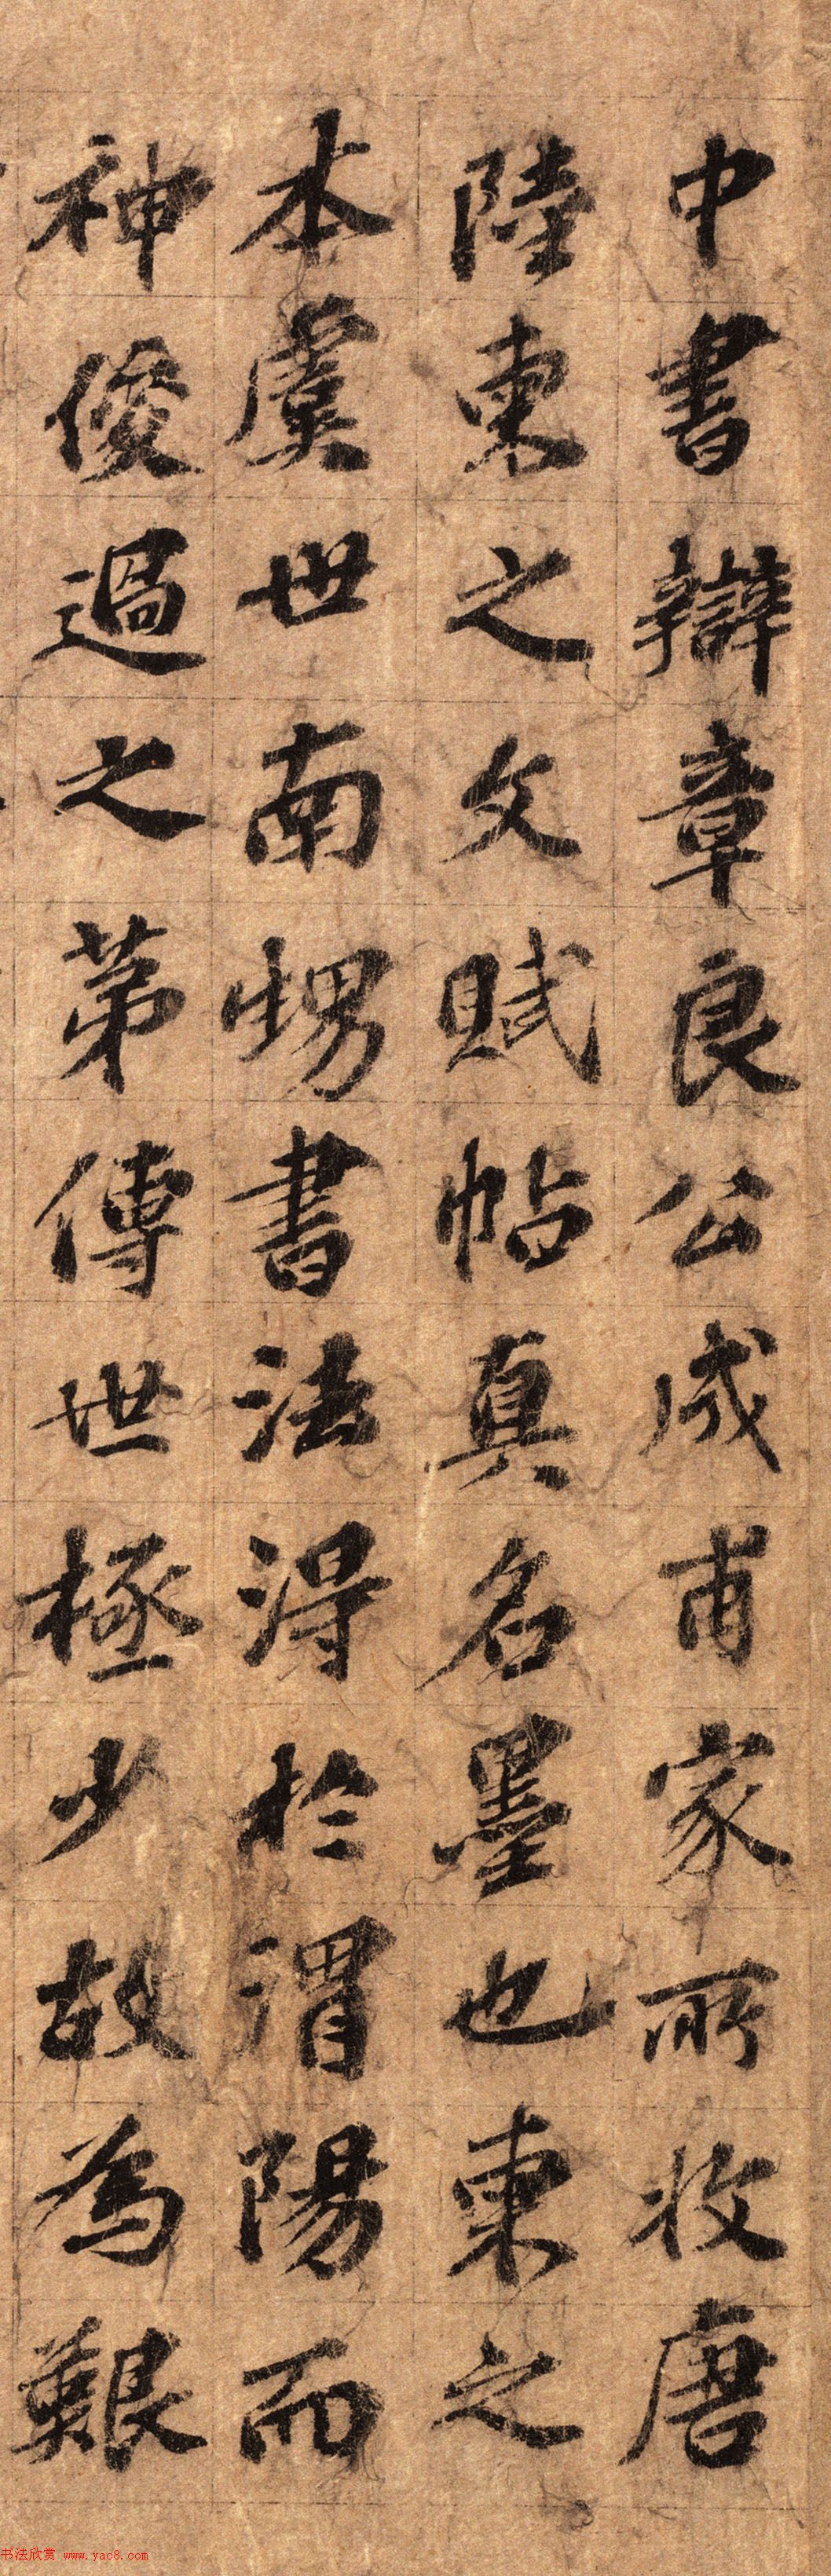 中書辯章良公成甫家所收唐
陸柬之文賦帖真名墨也柬之
本虞世南甥書法得於渭陽而
神俊過之第傳世極少故為艱
书法欣赏 www.yac8.com